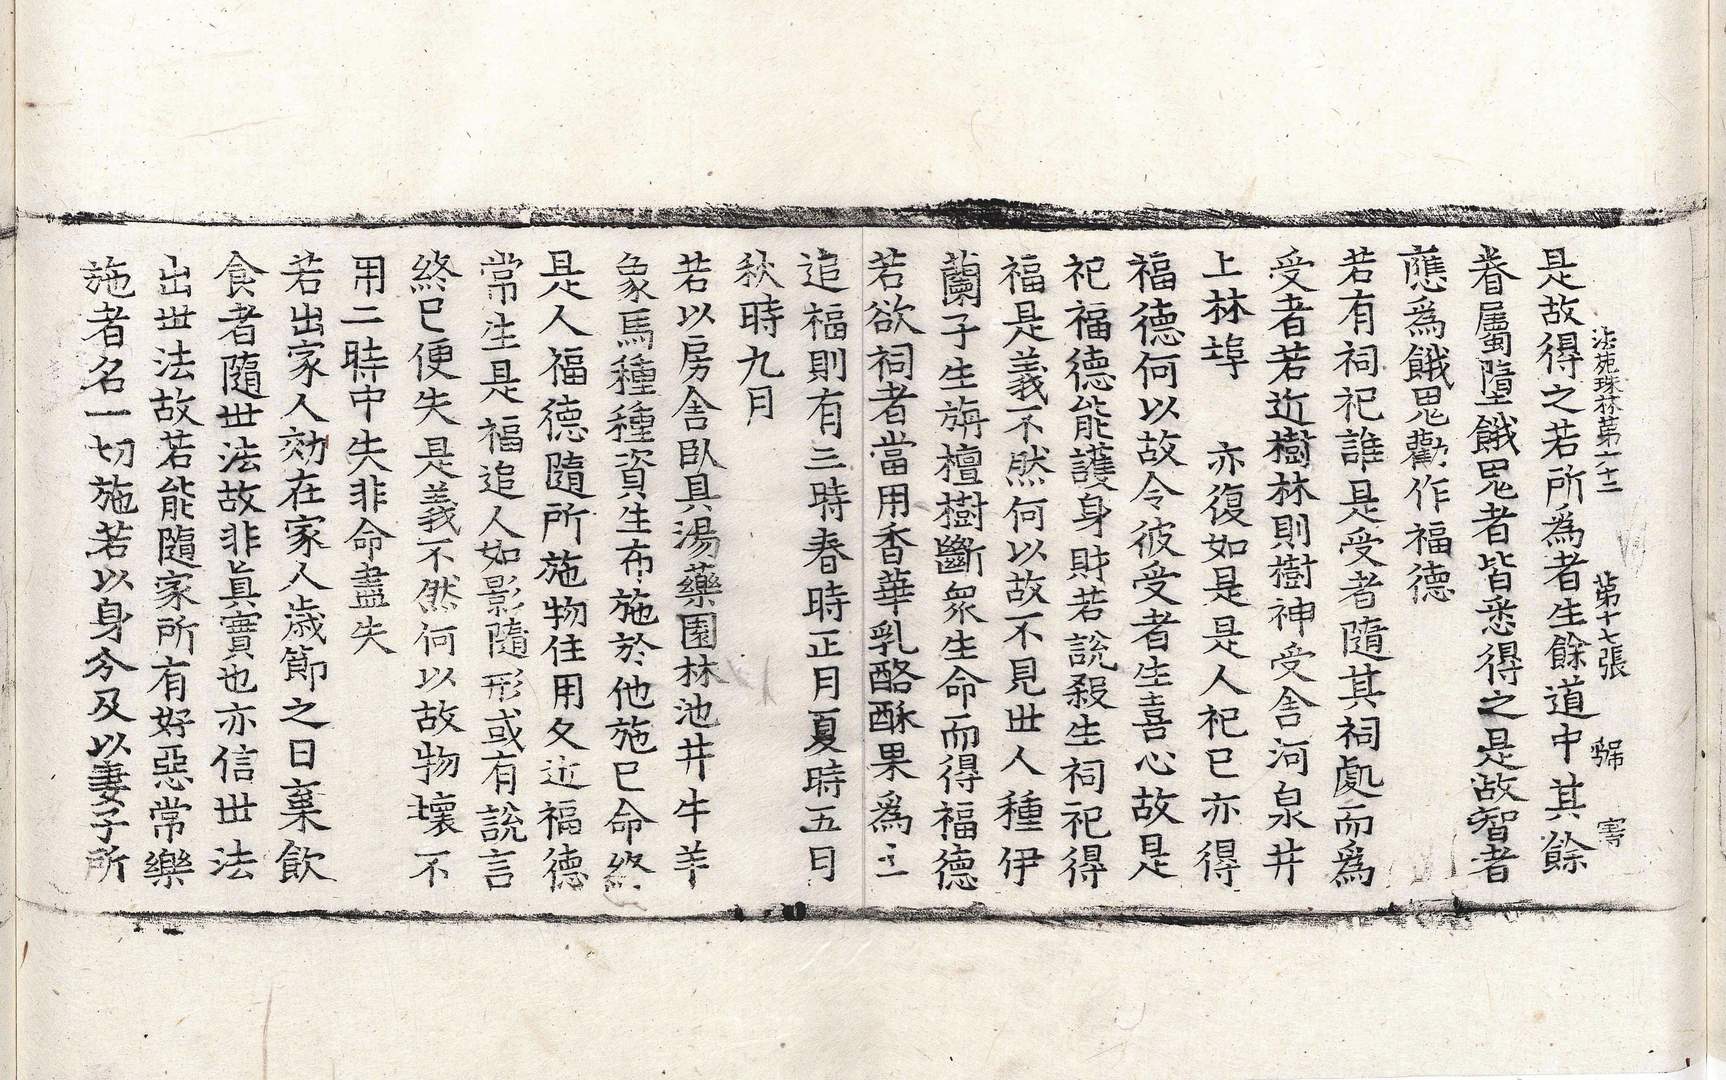 法苑珠林第六十二 第十七張
是故得之若所為者生餘道中其餘
眷屬墮餓鬼者皆悉得之是故智者
應為餓鬼勸作福德
若有祠祀誰是受者隨其祠處而為
受者若近樹林則樹神受舍河泉井
上林埠 亦復如是是人祀已亦得
福德何以故令彼受者生喜心故是
祀福德能護身財若說殺生祠祀得
福是義不然何以故不見世人種伊
蘭子生旃檀樹斷眾生命而得福德
若欲祠者當用香華乳酪酥果為亡
追福則有三時春時正月夏時五日
秋時九月
若以房舍臥具湯藥園林池井牛羊
象馬種種資生布施於他施已命終
是人福德隨所施物住用久近福德
常生是福追人如影隨形或有說言
終已便失是義不然何以故物壞不
用二時中失非命盡失
若出家人効在家人歲節之日棄飲
食者隨世法故非真實也亦信世法
出世法故若能隨家所有好惡常樂
施者名一切施若以身分及以妻子所